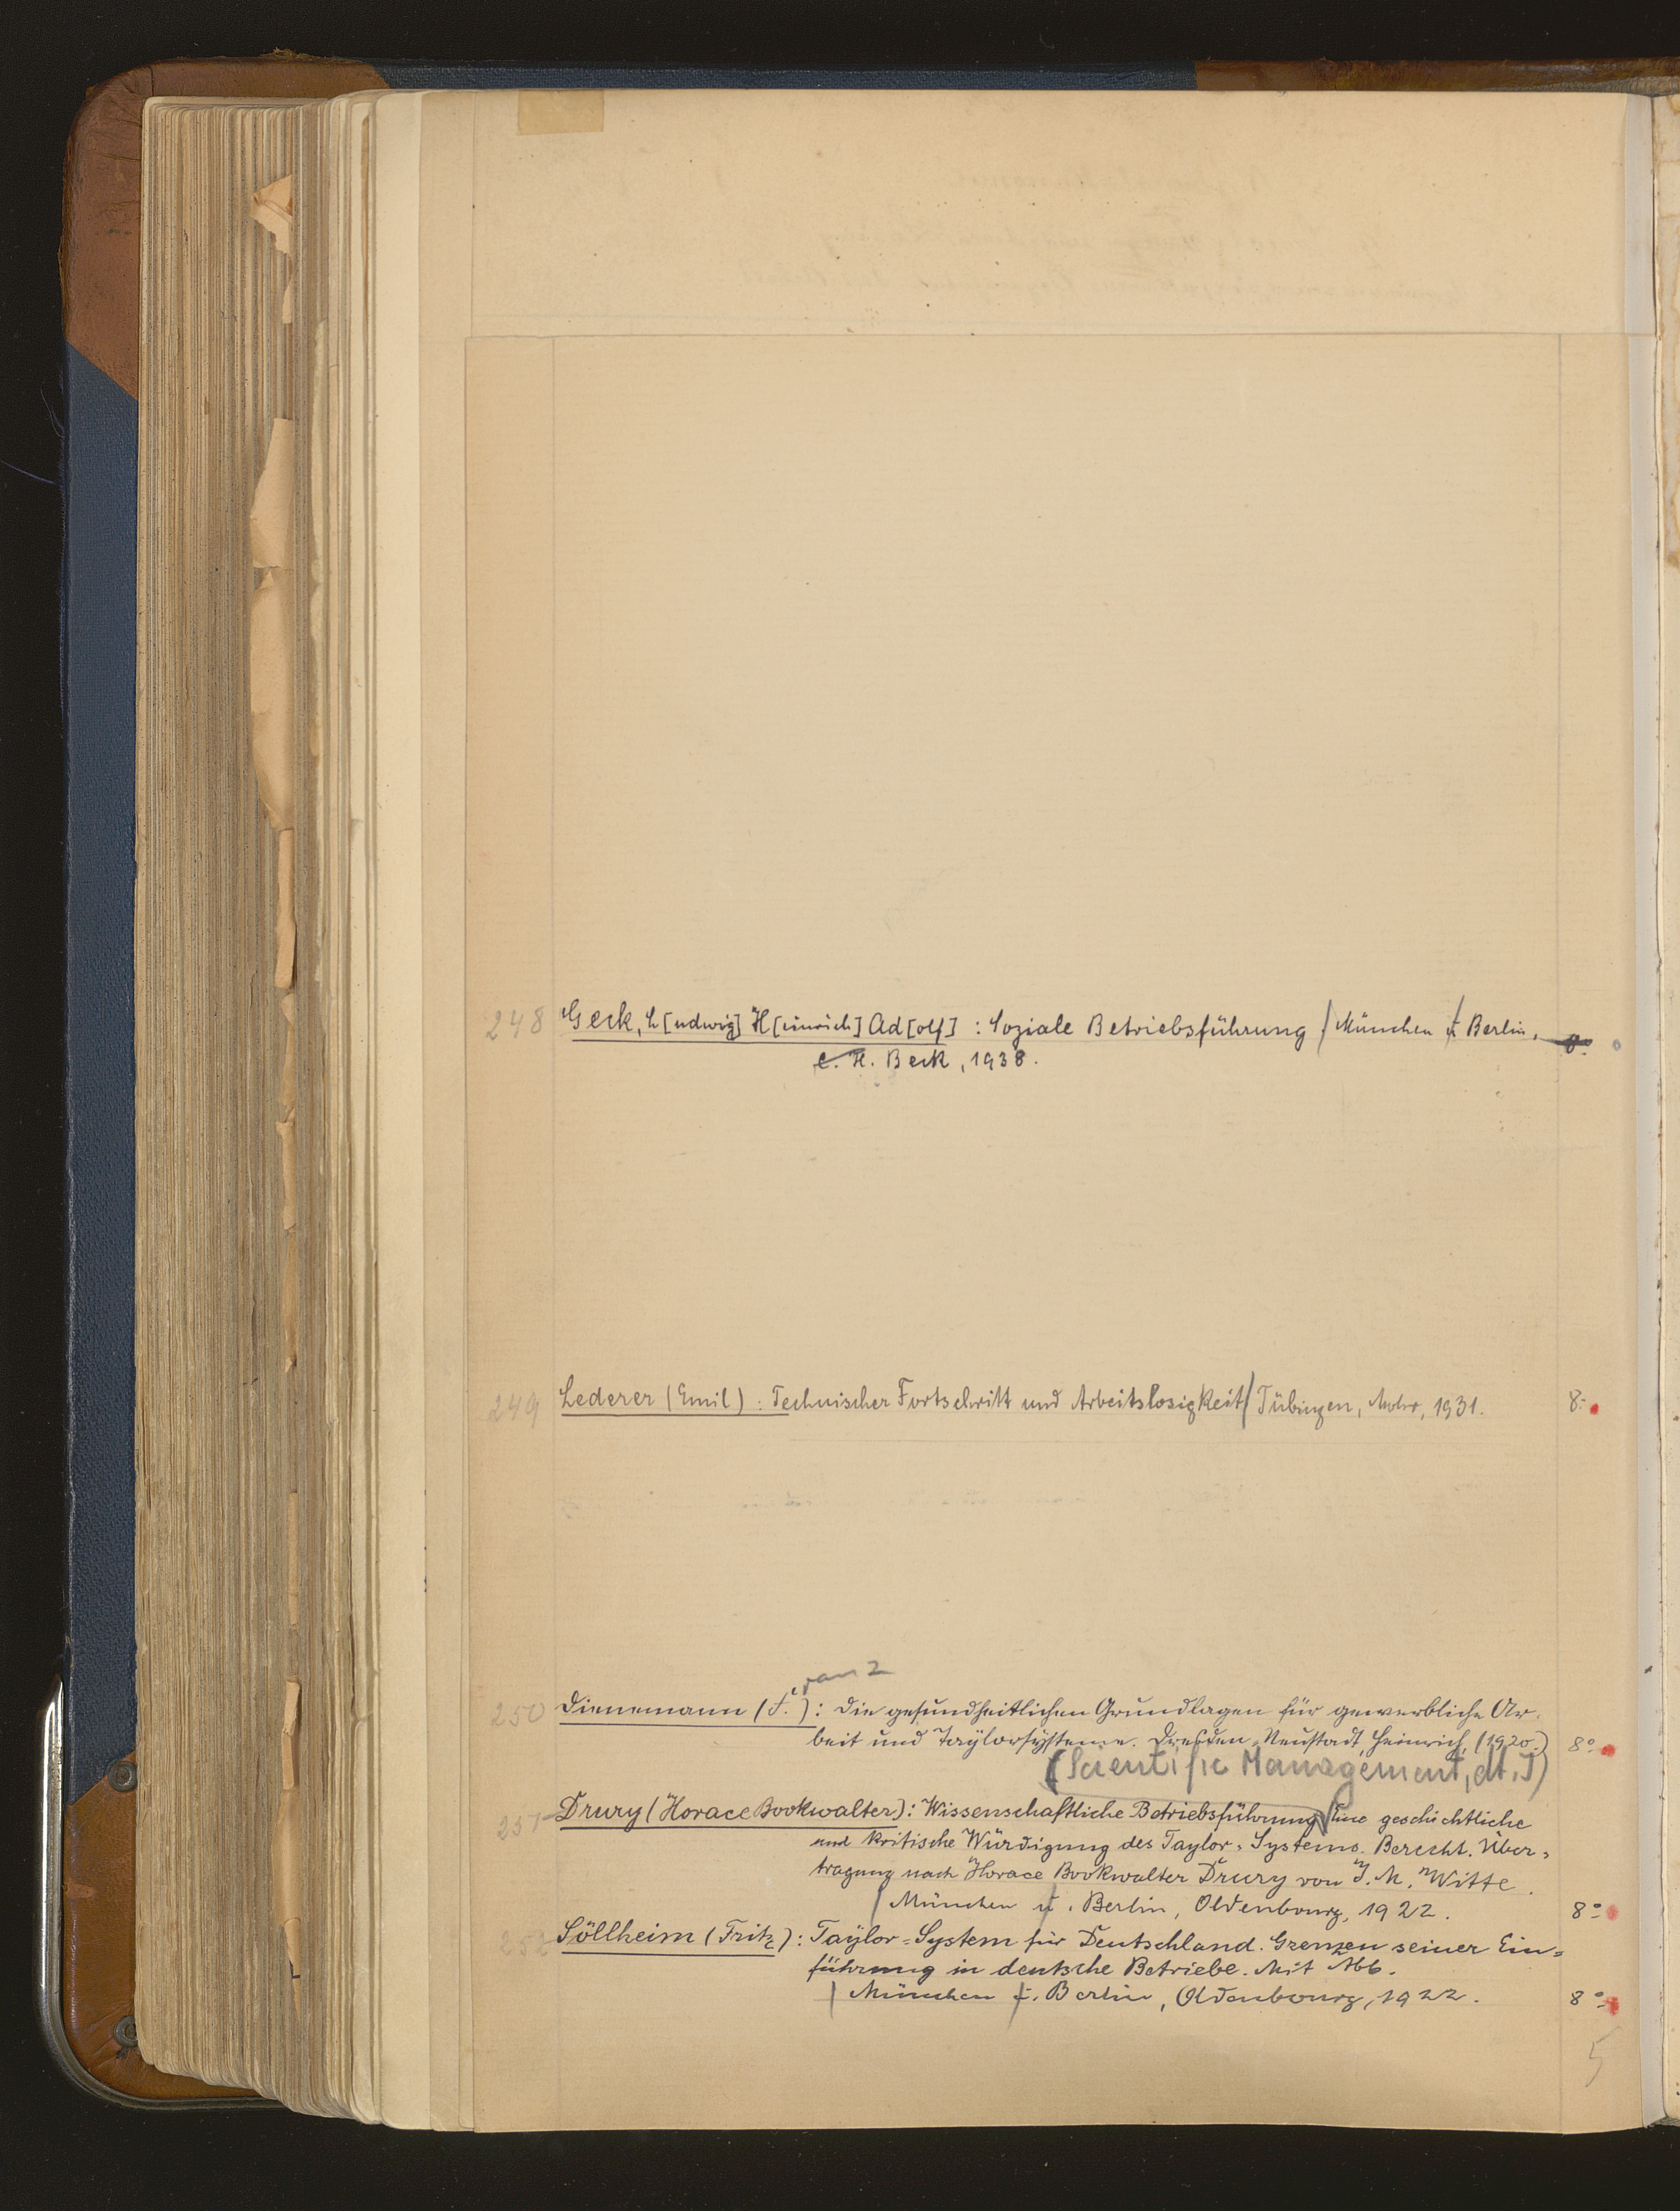 248 Geck, L[udwig] H[einrich] Ad[olf] : Soziale Betriebsführung / München u. Berlin, 8°
C. H. Beck, 1938.
249 Lederer (Emil) : Technischer Fortschritt und Arbeitslosigkeit / Tübingen, Mohr, 1931. 8°
ranz
250 Dienemann (F.) : Die gesundheitlichen Grundlagen für gewerbliche Ar-
beit und Taylorsysteme. Dresden-Neustadt, Heinrich, (1920.) 8°
(Scientific Management, dt.)
251 Drury (Horace Bookwalter) : Wissenschaftliche Betriebsführung Eine geschichtliche
und kritische Würdigung des Taylor-Systems. Berecht. Über-
tragung nach Horace Bookwalter Drury von I. M. Witte.
/ München u. Berlin, Oldenbourg, 1922. 8°
252 Söllheim (Fritz) : Taylor-System für Deutschland. Grenzen seiner Ein-
führung in deutsche Betriebe. Mit Abb.
/ München u. Berlin, Oldenbourg, 1922. 8°
5